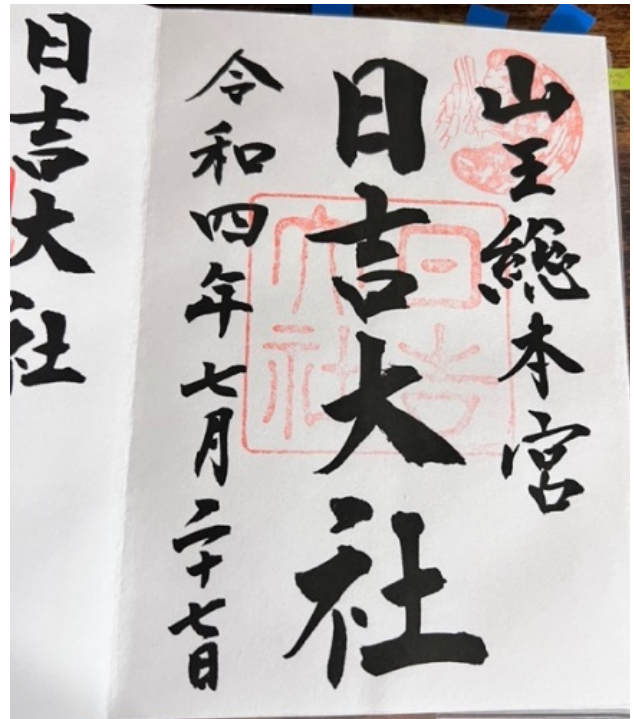 山王総本宮
日吉大社
令和四年七月二十七日
日吉
大社
日吉大社